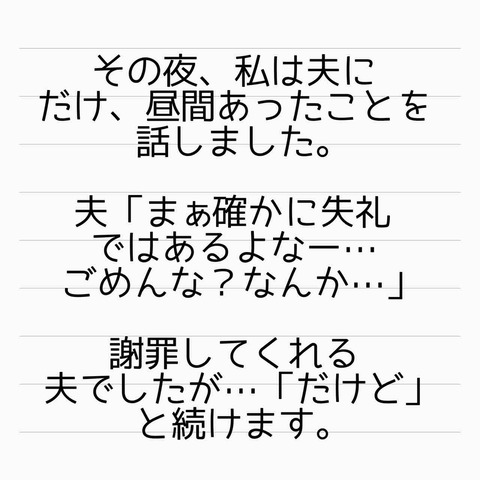 その夜、私は夫に
だけ、昼間あったことを
話しました。
夫「まぁ確かに失礼
ではあるよなー…
ごめんな？なんか…」
謝罪してくれる
夫でしたが…「だけど」
と続けます。